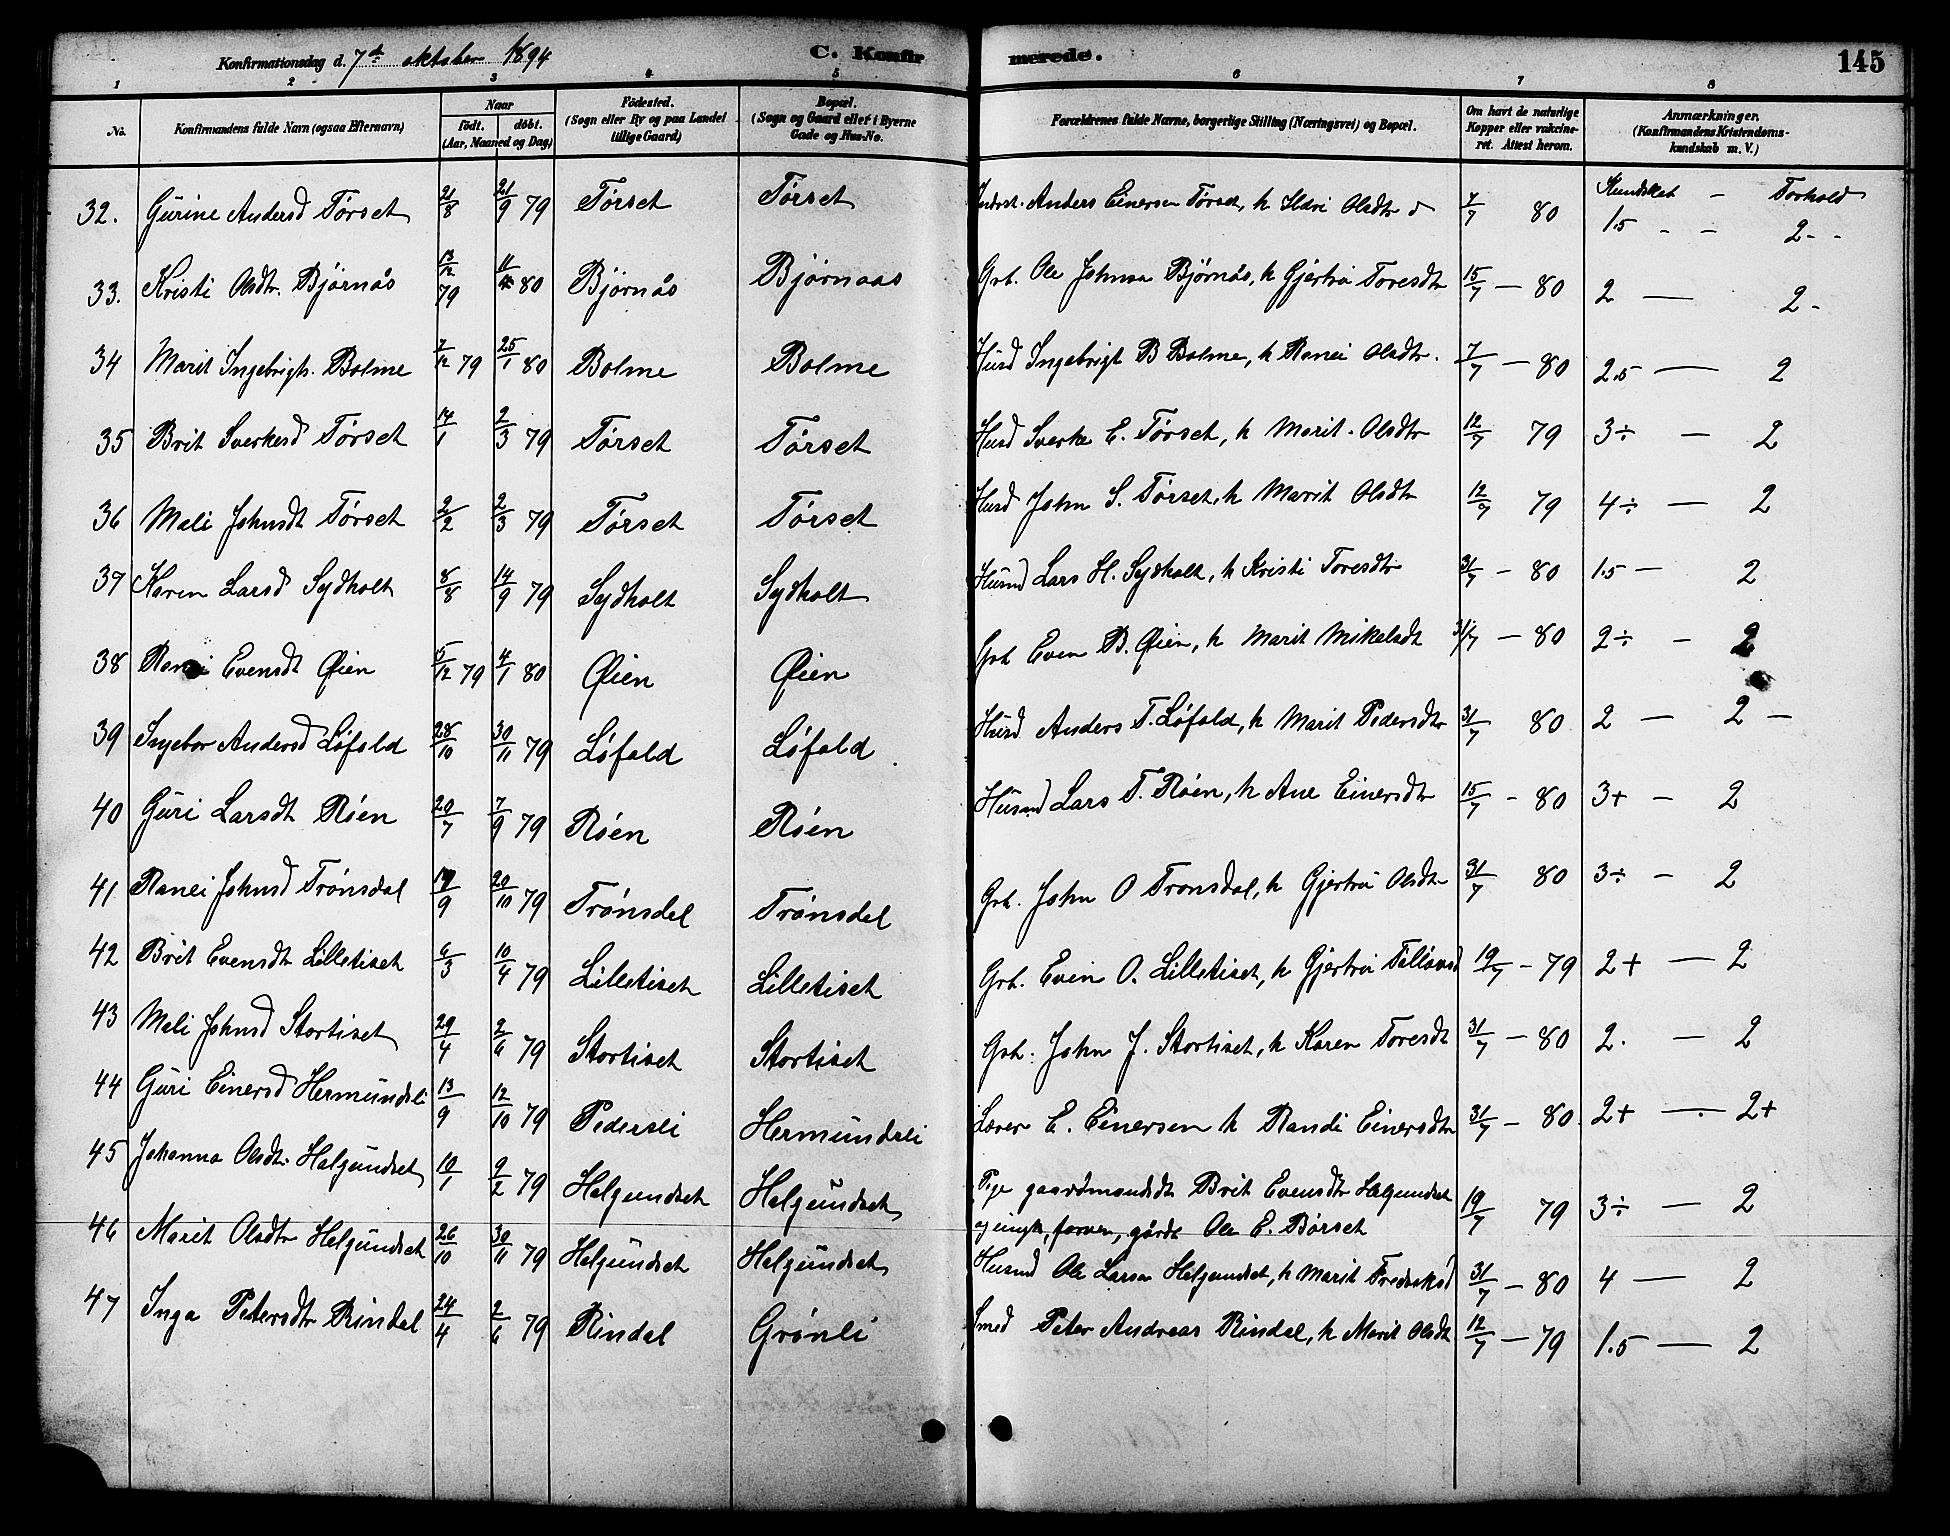 Konfirmationsdag d. 7de oktober 1894 C. Konfirmerede. 145
1 2 3 4 5 6 7 8
No. Konfirmandens fulde Navn (ogsaa Efternavn) Naar födt. döbt. (Aar, Maaned og Dag) Födested. (Sogn eller By og paa Landet tillige Gaard) Bopæl. (Sogn og Gaard eller i Byerne Gade og Hus-No.) Forældrenes fulde Navne, borgerlige Stilling (Næringsvei) og Bopæl. Om havt de naturlige Kopper eller vakcineret. Attest herom. Anmærkninger. (Konfirmandens Kristendomskundskab m. V.)
Kundskab - Forhold
32. Gurine Andersd Tørset 21/8 21/9 79 Tørset Tørset Anders Einersen Tørset, h Ildri Olsdtr 7/7 80 1.5 - - 2 - -
33. Kristi Olsdtr. Bjørnås 13/12 79 11/4 80 Bjørnås Bjørnaas Grb. Ole Johnsen Bjørnås, h Gjertrū Toresdtr 15/7 - 80 2 — 2 -
34 Marit Ingebrigts. Bolme 7/12 79 25/1 80 Bolme Bolme Husd Ingebrigt B Bolme, h Ranei Olsdtr. 7/7 - 80 2.5 — 2
35 Brit Sverkesd Tørset 14/1 2/3 79 Tørset Tørset Husd Sverke E. Tørset, h Marit. Olsdtr 12/7 79 3÷ — 2
36 Mali Johnsdt Tørset 2/2 2/3 79 Tørset Tørset Husd John S. Tørset, h Marit Olsdtr 12/7 79 4÷ — 2
37 Karen Larsd Sydholt 8/8 14/9 79 Sydholt Sydholt Husmd Lars H. Sydholt, h Kristi Toresdtr 31/7 - 80 1.5 — 2
38 Ranei Evensdt Øien 5/12 79 4/1 80 Øien Øien Grb Even B. Øien, h Marit Mikelsdt 31/7 - 80 2÷ - 2
39 Ingebor Andersd Løfald 28/10 30/11 79 Løfald Løfald Husd Anders T. Løfald, h Marit Pedersdtr 31/7 80 2 — 2 —
40 Guri Larsdt Røen 20/7 7/9 79 Røen Røen Husmd Lars T. Røen, h Ane Einersdtr 15/7 - 80 3+ - 2
41 Ranei Johnsd Trønsdal 14/9 20/10 79 Trønsdal Trønsdal Grb. John O Trønsdal, h Gjertrū Olsdtr 31/7 80 3÷ - 2
42 Brit Evensdt Lilletiset 6/3 10/4 79 Lilletiset Lilletiset Grb. Even O. Lilletiset, h Gjertrū 19/7 - 79 2+ — 2
43 Mali Johnsd Stortiset 29/4 2/6 79 Stortiset Stortiset Grb. John J. Stortiset, h Karen Toresdt 31/7 - 80 2. — 2
44 Guri Einersd Hermundsli 13/9 12/10 79 Pedersli Hermundsli Lærer E. Einersen h Randi Einersdtr 31/7 - 80 2+ — 2+
45 Johanna Olsdt. Halgundset 10/1 9/2 79 Helgundset Halgundset Pige gaardmandsdt Brit Evensdtr Halgundset 19/7 79 3÷ — 2
og Ole E. Børset
46 Marit Olsdtr Helgundset 26/10 30/11 79 Helgundset Halgundset Husmd Ole Larsen Helgundset, h Marit Frederiksd 31/7 - 80 4 — 2
47 Inga Petersdtr Rindal 24/4 2/6 79 Rindal Grønli Smed Peter Andreas Rindal, h Marit Olsdt 12/7 - 79 1.5 — 2